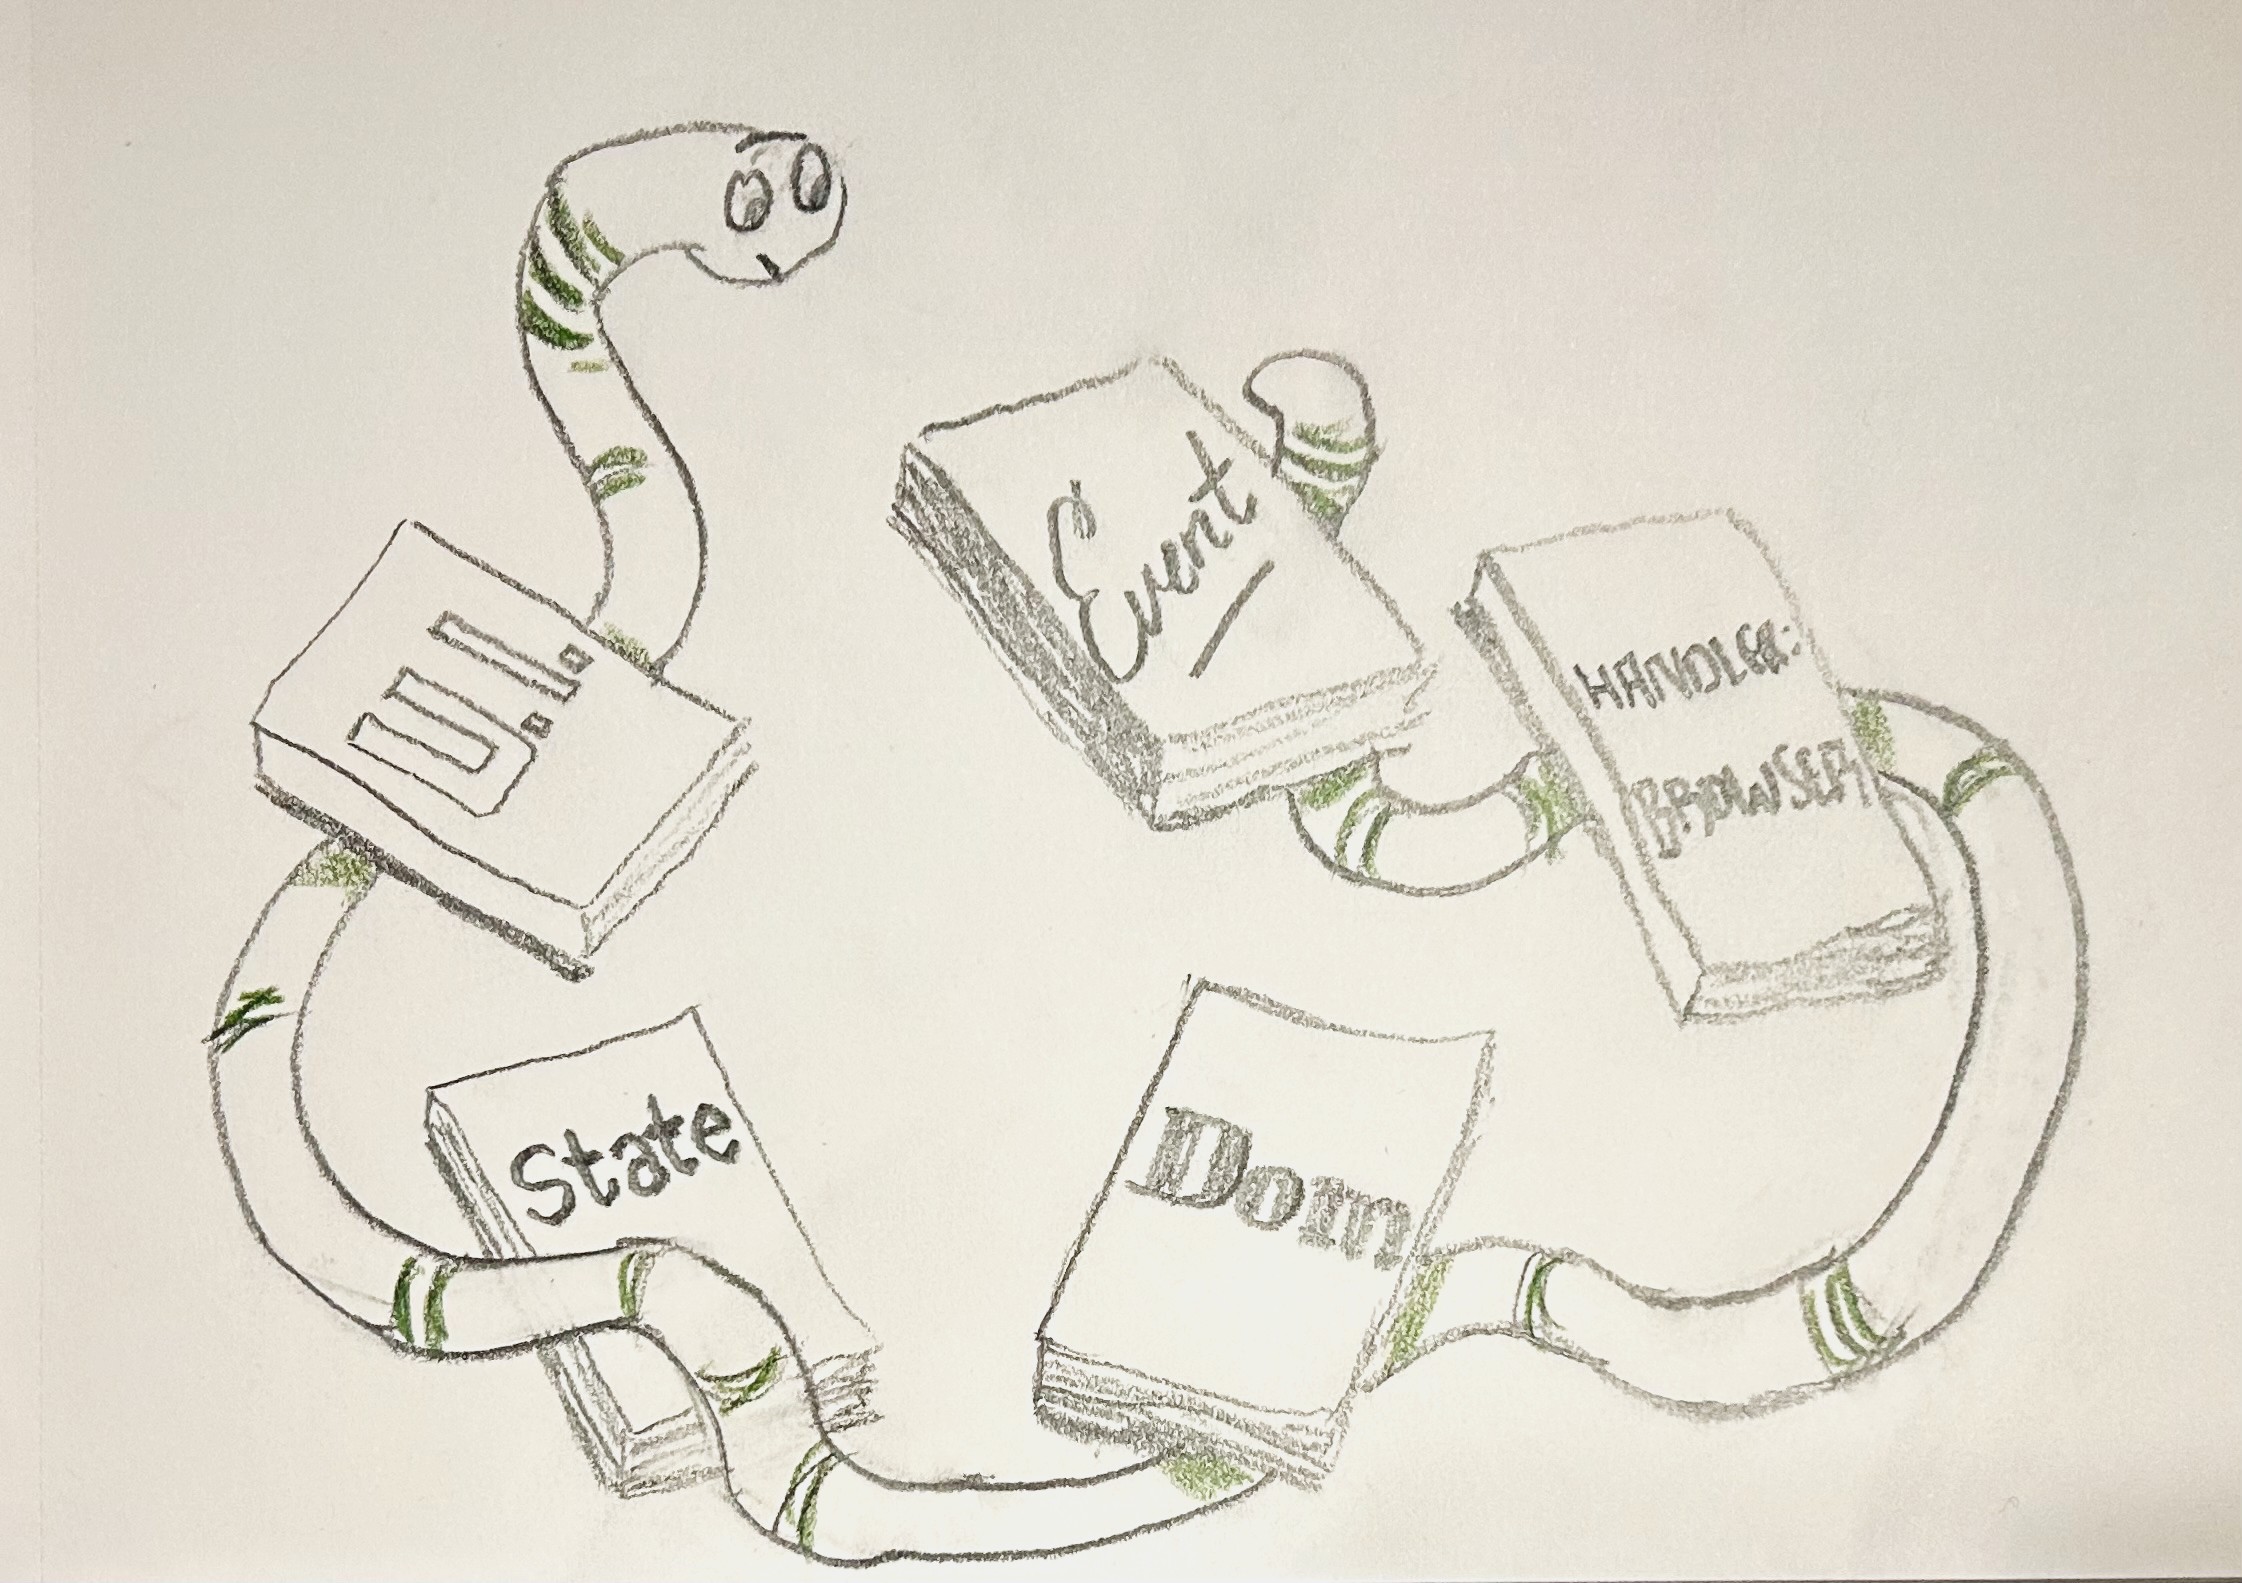 Event
U.I.
HANDLER:
BROWSER
State
Dom